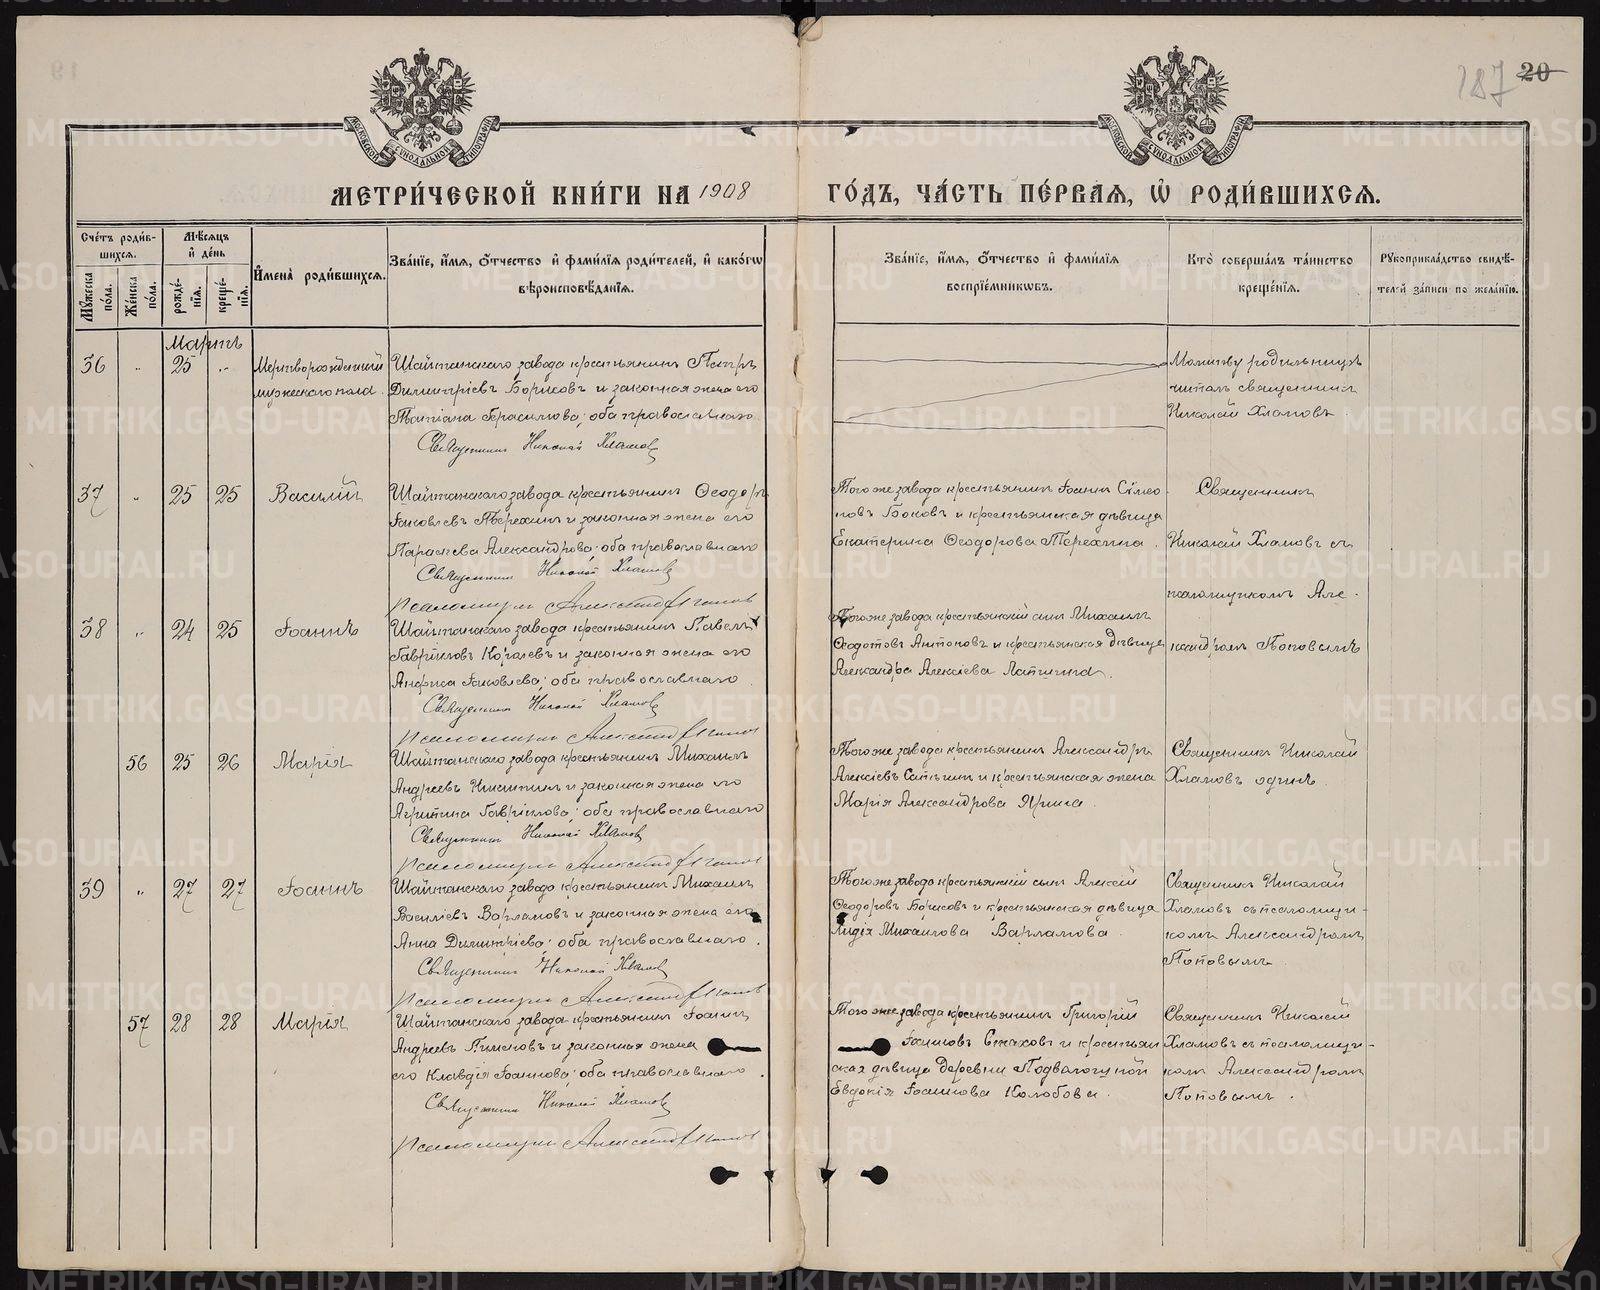 187 20
МОСКОВСКОЙ СУНОДАЛЬНОЙ ТИПОГРАФІИ
МОСКОВСКОЙ СУНОДАЛЬНОЙ ТИПОГРАФІИ
МЕТРИ́ЧЕСКОЙ КНИ́ГИ НА 1908 ГО́ДЪ, ЧА́СТЬ ПЕ́РВАѦ, Ѽ РОДИ́ВШИХСѦ.
Сче́тъ роди́в-
шихсѧ.
Мꙋ́жеска по́ла.
Же́нска по́ла.
Мѣ́сѧцъ
и҆ де́нь
рожде́-
нїѧ.
креще́-
нїѧ.
И҆мена̀ роди́вшихсѧ.
Зва́нїе, и҆́мѧ, ѻ҆́тчество и҆ фами́лїѧ роди́телей, и҆ како́гѡ
вѣроисповѣ́данїѧ.
Зва́нїе, и҆́мѧ, ѻ҆́тчество и҆ фами́лїѧ
воспрїе́мникѡвъ.
Кто̀ соверша́лъ та́инство
креще́нїѧ.
Рꙋкоприкла́дство свидѣ́-
телей за́писи по жела́нїю.
Мартъ
36 " 25 "
Мертворожденный
мужескаго пола.
Шайтанскаго завода крестьянинъ Петръ
Димитріевъ Борисовъ и законная жена его
Татіана Герасимова; оба православнаго.
Священникъ Николай Хламовъ
Молитву родильницѣ
читалъ священникъ
Николай Хламовъ.
37 " 25 25 Василій
Шайтанскаго завода крестьянинъ Ѳеодоръ
Іаковлевъ Терехинъ и законная жена его
Параскева Александрова; оба православнаго
Священникъ Николай Хламовъ
Псаломщикъ Александръ Поповъ
Того же завода крестьянинъ Іоаннъ Симео
новъ Боковъ и крестьянская дѣвица
Екатерина Ѳеодорова Терехина.
Священникъ
Николай Хламовъ съ
псаломщикомъ Але-
38 " 24 25 Іоаннъ
Шайтанскаго завода крестьянинъ Павелъ
Гавріиловъ Королевъ и законная жена его
Анфиса Іаковлева; оба православнаго.
Священникъ Николай Хламовъ
Псаломщикъ Александръ Поповъ
Того же завода крестьянскій сынъ Михаилъ
Ѳедотовъ Антоновъ и крестьянская дѣвица
Александра Алексіева Лапшина.
ксандромъ Поповымъ
56 25 26 Марія
Шайтанскаго завода крестьянинъ Михаилъ
Андреевъ Никитинъ и законная жена его
Агрипина Гавріилова; оба православнаго
Священникъ Николай Хламовъ
Псаломщикъ Александръ Поповъ
Того же завода крестьянинъ Александръ
Алексіевъ и крестьянская жена
Марія Александрова Ярина.
Священникъ Николай
Хламовъ одинъ
39 " 27 27 Іоаннъ
Шайтанскаго завода крестьянинъ Михаилъ
Василіевъ Варламовъ и законная жена его
Анна Димитріева; оба православнаго.
Священникъ Николай Хламовъ
Псаломщикъ Александръ Поповъ
Того же завода крестьянскій сынъ Алексій
Ѳеодоровъ Борисовъ и крестьянская дѣвица
Лидія Михаилова Варламова.
Священникъ Николай
Хламовъ съ псаломщи-
комъ Александромъ
Поповымъ
57 28 28 Марія
Шайтанскаго завода крестьянинъ Іоаннъ
Андреевъ Пименовъ и законная жена
его Клавдія Іоаннова; оба православнаго.
Священникъ Николай Хламовъ
Псаломщикъ Александръ Поповъ
Того же завода крестьянинъ Григорій
Іоанновъ Стаховъ и крестьян
ская дѣвица деревни Подволошной
Евдокія Іоаннова Колобова.
Священникъ Николай
Хламовъ съ псаломщи-
комъ Александромъ
Поповымъ.